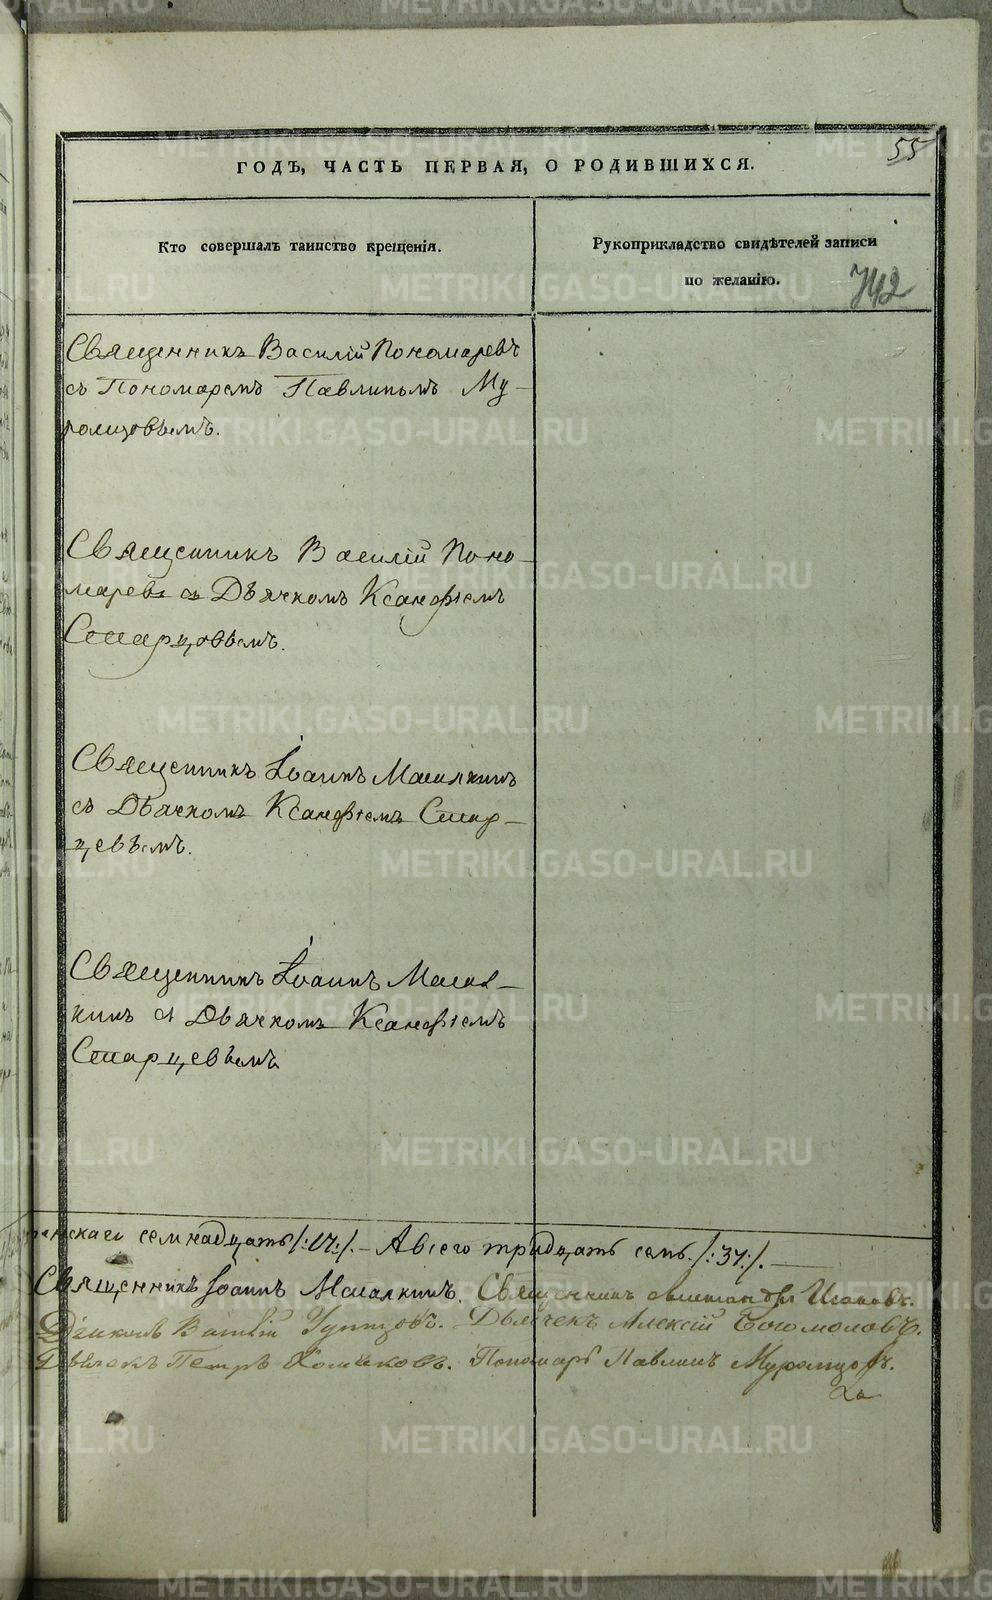 55
ГОДЪ, ЧАСТЬ ПЕРВАЯ, О РОДИВШИХСЯ.
Кто совершалъ таинство крещенія.
Рукоприкладство свидѣтелей записи
по желанію.
742
Священникъ Василій Пономаревъ
съ Пономаремъ Павлиномъ Му-
ромцовымъ.
Священникъ Василій Поно-
маревъ съ Дьячкомъ Ксанфіемъ
Старцовымъ.
Священникъ Іоаннъ Масалкинъ
съ Дьячкомъ Ксанфіемъ Стар-
цевымъ.
Священникъ Іоаннъ Масал-
кинъ съ Дьячкомъ Ксанфіемъ
Старцевымъ
женскаго семнадцать /:17:/. – А всего тридцать семь. /:37:/. —
Священникъ Іоаннъ Масалкинъ. Священникъ Александръ
Діаконъ Василій Удинцовъ. Дьячекъ Алексій Богомоловъ.
Дьячекъ Петръ Пономарь Павлинъ Муромцовъ.
METRIKI.GASO-URAL.RU